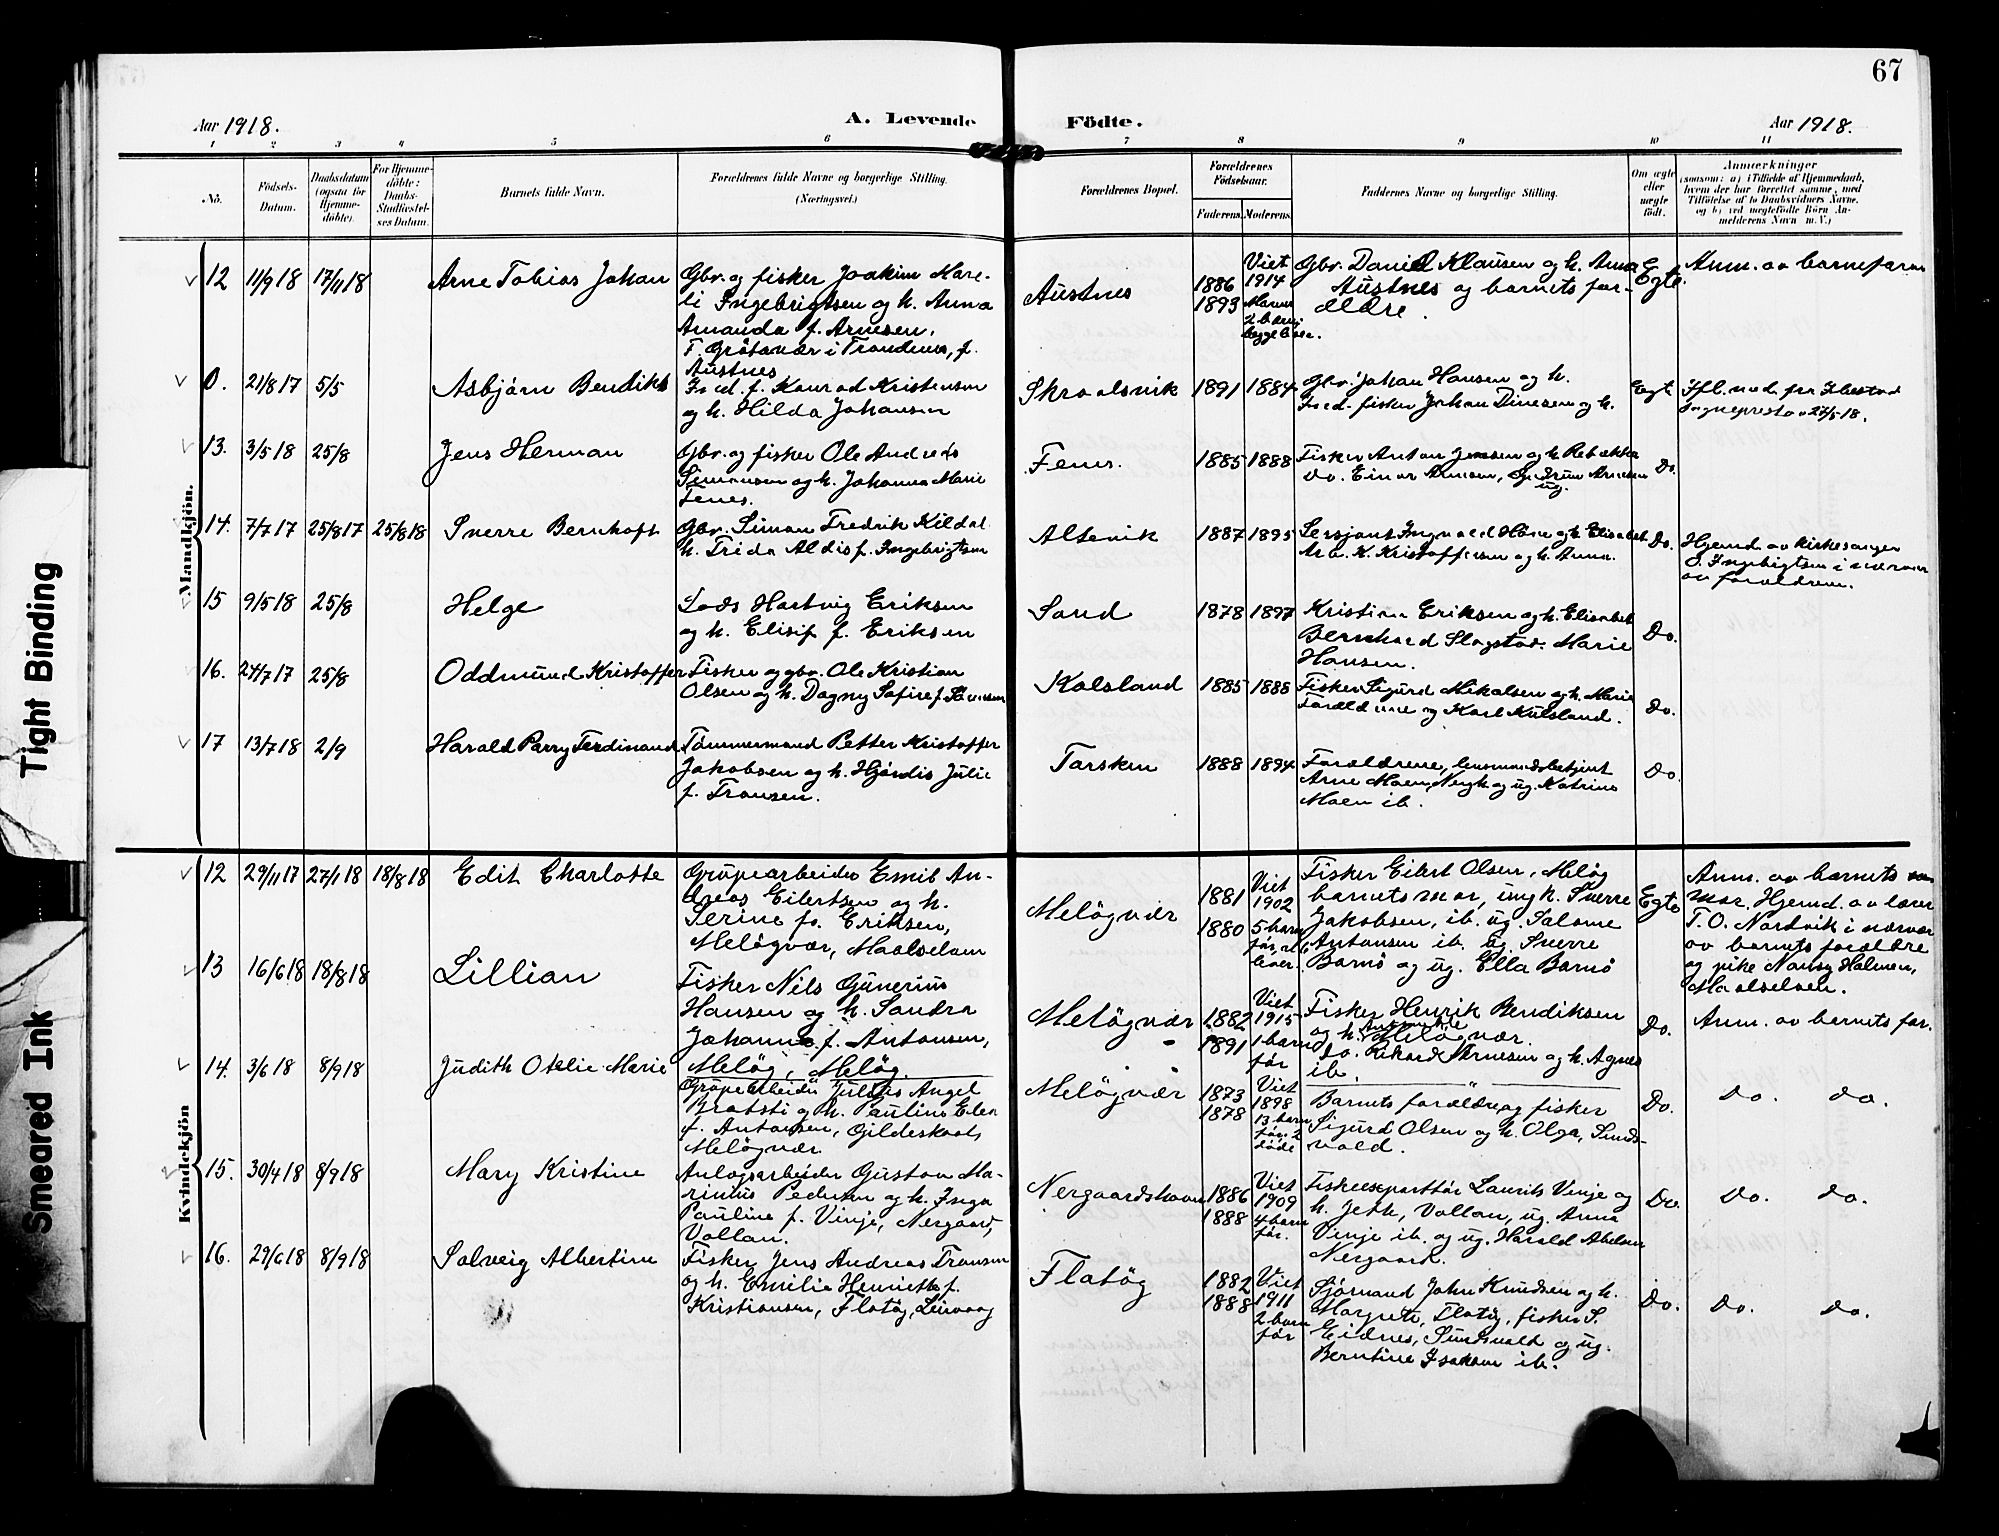 67
Aar 1918.
A. Levende Födte.
Aar 1918.
1 2 3 4 5 6 7 8 9 10 11
No.
Födsels-
Datum.
Daabsdatum
(ogsaa for
Hjemme-
döbte).
For Hjemme-
döbte:
Daabs-
Stadfæstel-
ses Datum.
Barnets fulde Navn.
Forældrenes fulde Navne og borgerlige Stilling.
(Næringsvei.)
Forældrenes Bopæl.
Forældrenes
Födselsaar.
Faderens.
Moderens.
Faddernes Navne og borgerlige Stilling.
Om ægte
eller
uægte
födt.
Anmærkninger
(saasom: a) i Tilfælde af Hjemmedaab,
hvem der har forrettet samme, med
Tilföielse af to Daabsvidners Navne,
og b) ved uægtefödte Börn An-
melderens Navn m. V.)
Mandkjön.
12 11/9 18 17/11 18 Arne Tobias Johan
Gbr. og fisker Joakim Mare-
li Ingebrigtsen og h. Anna
Amanda f. Arnesen.
F. Gråtavær i Trondenes, f.
Austnes
Austnes
1886
1893
Viet
1914
2 barn
begge lever.
Gbr. Daniel Klausen og h. Anna
Austnes og barnets for-
ældre.
Egte.
Anm. av barnefaren
0. 21/8 17 5/5 Asbjørn Bendikt
Ind. f. Konrad Kristensen
og h. Hilda Johansen
Skroolsvik 1891 1884
Gbr. Johan Hansen og h.
Ind. fisker Johan Dinesen og h.
Egt
Ifl. med. fra Ibestad
Sogneprest av 27/5 18.
13. 3/5 18 25/8 Jens Herman
Gbr. og fisker Ole Andreas
Simonsen og h. Johanna Marie
Fenes.
Fenes. 1885 1888
Fisker Anton Jensen og h. Rebekka
Do. Einar Arnesen, Gudrun Arnesen
ug.
Do.
14. 7/7 17 25/8 17 25/8 18 Sverre Bernhoft
Gbr. Simon Fredrik Kildal
h. Frida Aldis f. Ingebrigtsen
Altevik 1887 1895
Sersjant Ingvald og h. Elisabet
K. Kristoffersen og h. Anna.
Do.
Hjemd. av kirkesanger
J. Ingebrigtsen i nærvær
av forældrene.
15 9/5 18 25/8 Helge
Lods Hartvig Eriksen
og h. Elisif f. Eriksen
Sand 1878 1897
Kristian Eriksen og h. Elisabet
Bernhard Slagstad. Marie
Hansen.
Do.
16. 24/7 17 25/8 Oddmund Kristoffer
Fisker og gbr. Ole Kristian
Olsen og h. Dagny Sofire f.
Kolsland 1885 1888
Fisker Sigurd Mikalsen og h. Marie
Forældrene og Karl Kulsland.
Do.
17 13/7 18 2/9 Harald Parry Ferdinand
Tømmermand Petter Kristoffer
Jakobsen og h. Hjördis Julie
f. Fransen.
Torsken 1888 1894
Forældrene, lensmandsbetjent
Arne Moen, og ug. Katrine
Moen ib.
Do.
Kvindekjön
12 29/11 17 27/1 18 18/8 18 Edit Charlotte
Grupearbeider Emil An-
dreas Eilertsen og h.
Serine fø. Eriksen,
Meløgvær, Maalselven
Meløgvær
1881
1880
Viet
1902
5 barn
før, alle
lever.
Fisker Eilert Olsen, Meløg
barnets mor, ung k. Sverre
Jakobsen, ib. ug. Salome
Antonsen ib. ug. Sverre
Barnø og ug. Ella Barnø
Egte
Anm. av barnets
mor. Hjemd. av lærer
T. O. Nordvik i nærvær
av barnets forældre
og pike Nansy Halmen,
Maalselven.
13 16/6 18 18/8 18 Lillian
Fisker Nils Gunerius
Hansen og h. Sandra
Johanne f. Antonsen,
Meløg, Meløg.
Meløgvær
1882
1891
Viet
1915
1 barn
før
Fisker Henrik Bendiksen
og h. Meløgvær.
Do. Rikard Arnesen og h. Agnes
ib.
Do.
Anm. av barnets far.
14. 3/6 18 8/9 18 Judith Otelie Marie
Grupearbeider Julius Angel
Bratsti og h. Pauline Elen
f. Antonsen, Gildeskaal,
Meløgvær
Meløgvær
1873
1878
Viet
1898
13 barn
før. 2
døde
Barnets forældre og fisker
Sigurd Olsen og h. Olga, Sunds-
vold.
Do.
Do. Do.
15. 30/4 18 8/9 18 Mary Kristine
Anlegsarbeider Gustav Ma-
rinius Pedersen og h. Inga
Pauline f. Vinje, Nergaard,
Vollan.
Nergaardshavn
1886
1888
Viet
1909
4 barn
før.
Fiskeeksportør Laurits Vinje og
h. Jeth, Vollan, ug. Anna
Vinje ib. og ug. Harald Abelsen
Nergaard.
Do.
Do. Do.
16. 29/6 18 8/9 18 Solveig Albertine
Fisker Jens Andreas Fransen
og h. Emilie Henriette f.
Kristiansen, Flatøg, Leirvaag
Flatøg
1882
1888
Viet
1911
2 barn
før
Sjømand John Knudsen og h.
Margrete, Flatøg, fisker S.
Eidnes, Sundsvald og ug.
Berntine Isaksen ib.
Do.
Do. Do.
Tight Binding
Smeared Ink